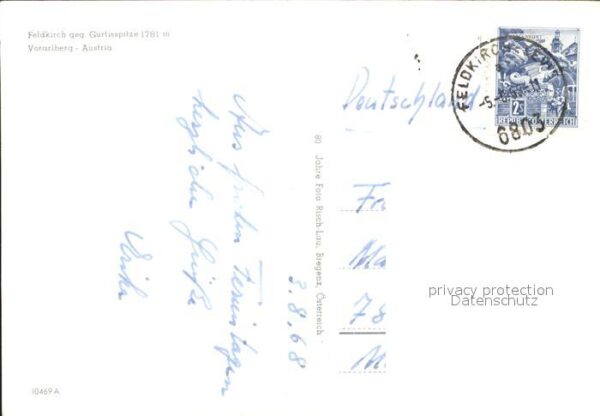 Feldkirch geg. Gurtisspitze 1781 m
Vorarlberg - Austria
Deutschland
2 S
REPUBLIK ÖSTERREICH
FELDKIRCH
6803
Aus frohen Ferientagen
herzliche Grüße
3.8.68
80 Jahre Foto Risch-Lau, Bregenz, Österreich
Fr
Ma
78
M
privacy protection
Datenschutz
10469 A